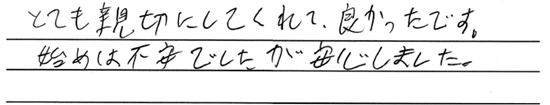 とても親切にしてくれて、良かったです。
始めは不安でしたが安心しました。